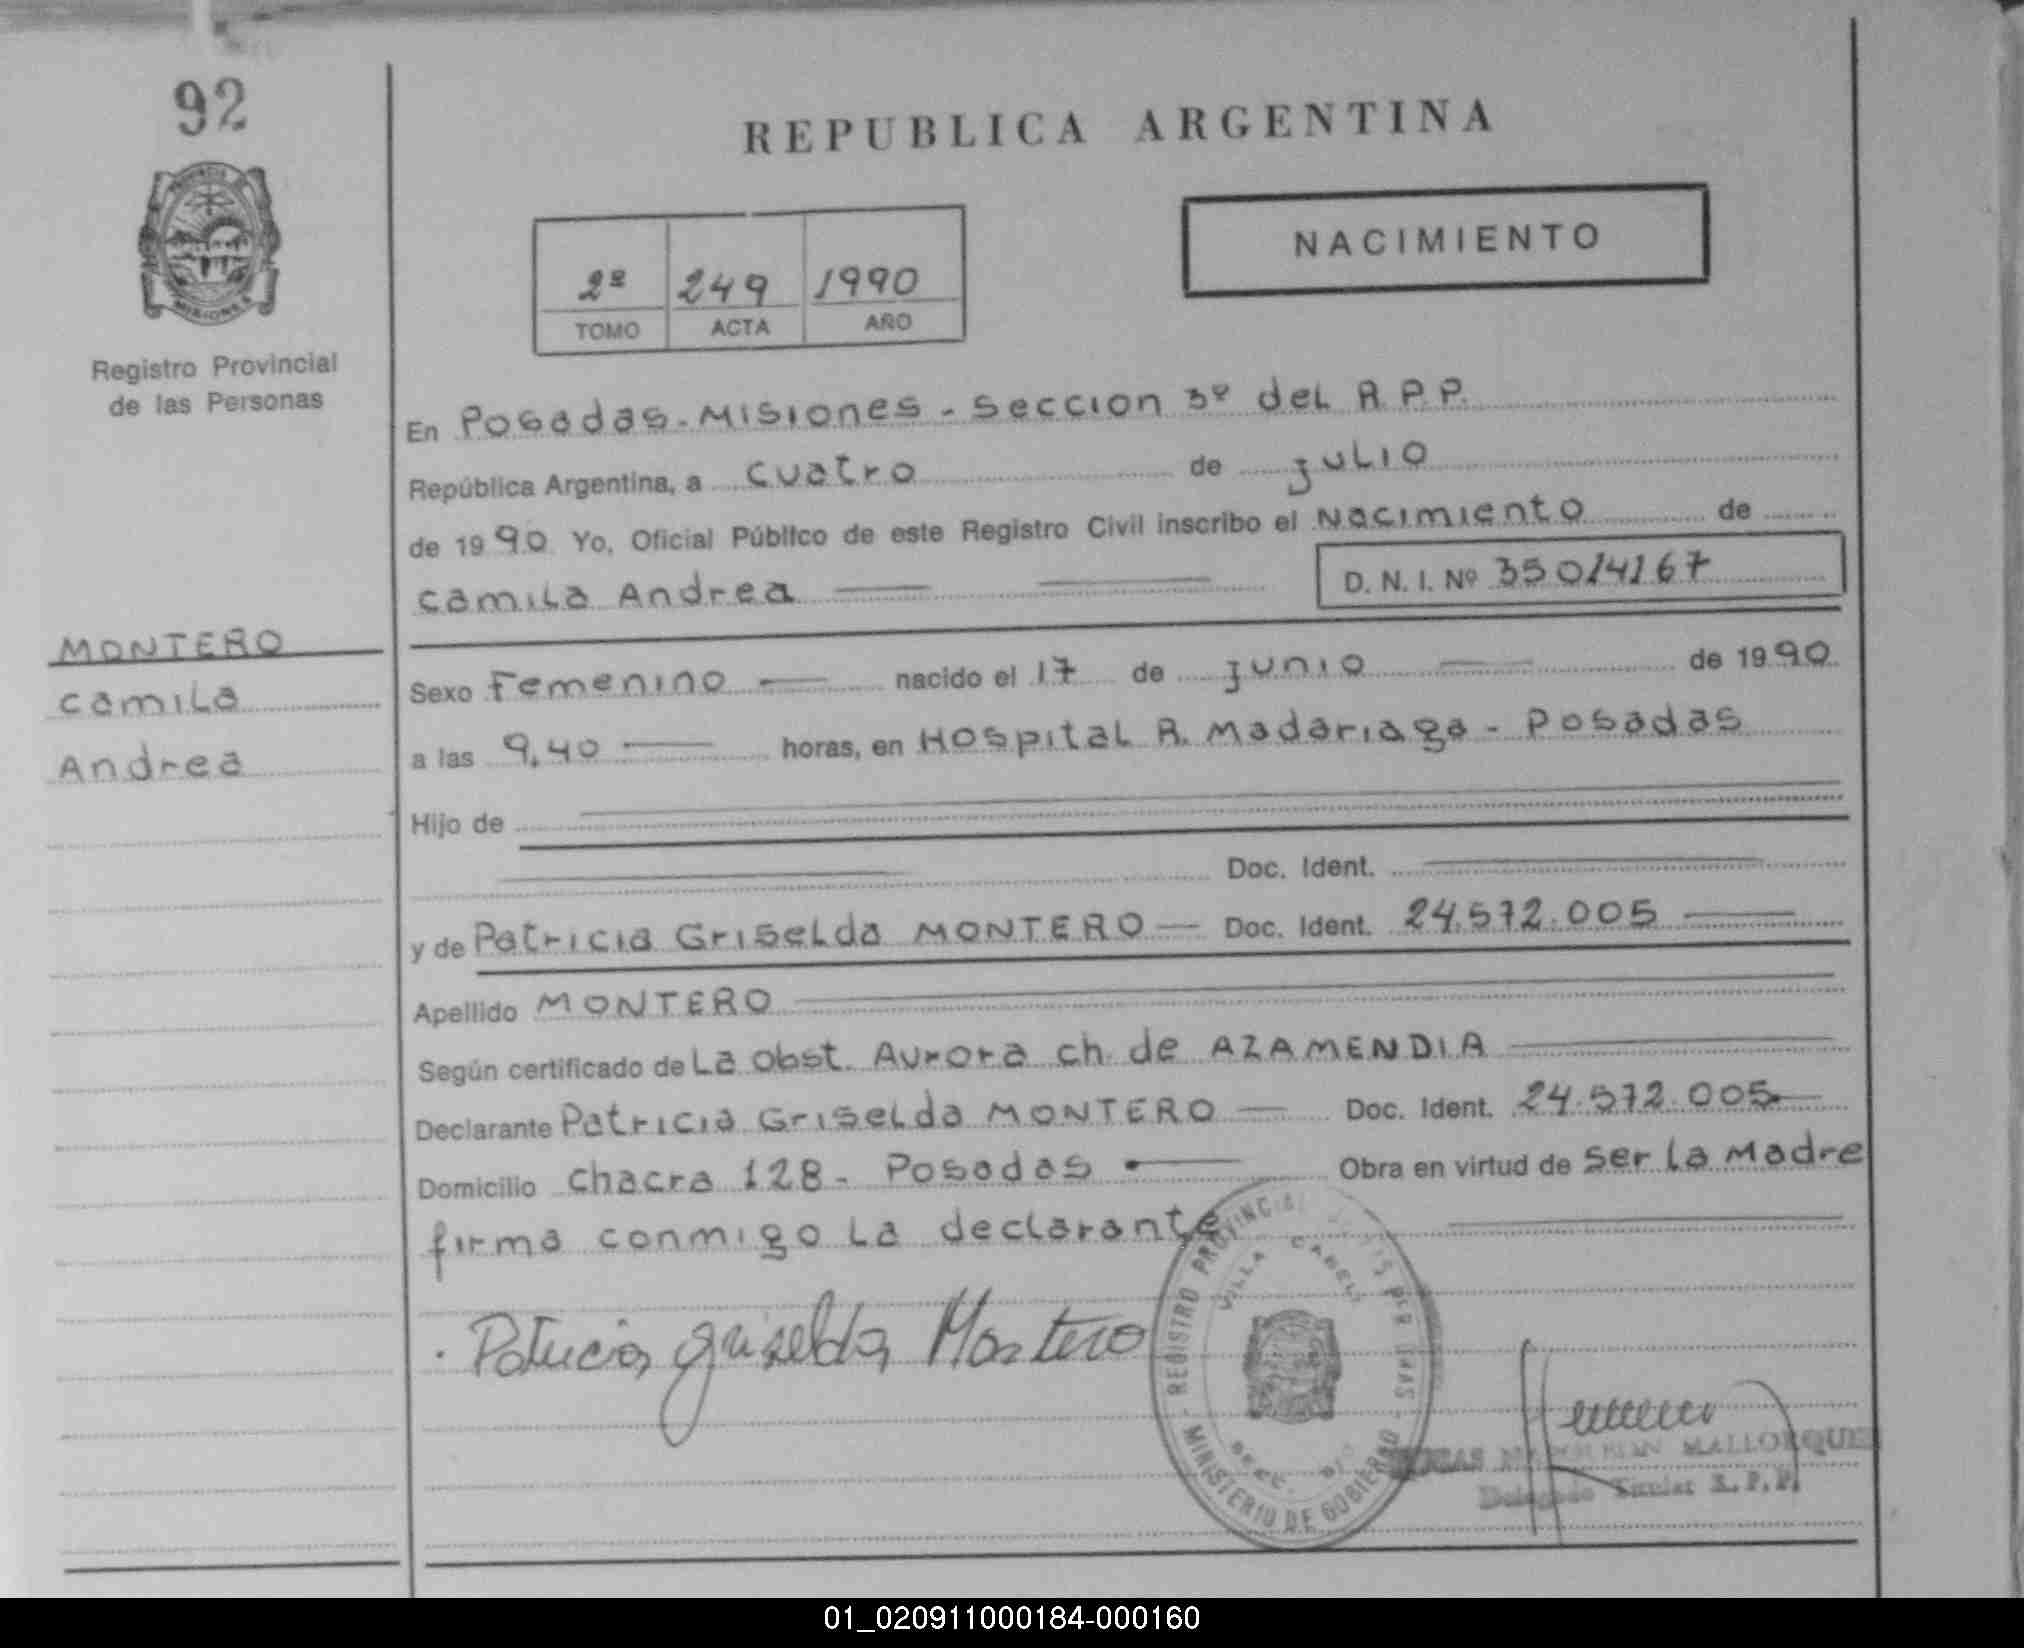 92
REPUBLICA ARGENTINA
NACIMIENTO
2º 249 1990
TOMO ACTA AÑO
MISIONES
Registro Provincial
de las Personas
En Posadas - Misiones - Seccion 3º del R.P.P.
República Argentina, a cuatro de julio
de 1990 Yo, Oficial Público de este Registro Civil inscribo el Nacimiento de
Camila Andrea
D. N. I. Nº 35014167
MONTERO
Camila
Andrea
Sexo Femenino nacido el 17 de junio de 1990
a las 9,40 horas, en Hospital R. Madariaga - Posadas
Hijo de
Doc. Ident.
y de Patricia Griselda MONTERO Doc. Ident. 24.572.005
Apellido MONTERO
Según certificado de La Obst. Aurora Ch. de AZAMENDIA
Declarante Patricia Griselda MONTERO Doc. Ident. 24.572.005
Domicilio Chacra 128 - Posadas Obra en virtud de ser la Madre
firma conmigo La declarante
REGISTRO PROVINCIAL DE LAS PERSONAS
VILLA CABELLO
MINISTERIO DE GOBIERNO
Patricia Griselda Montero
MALLORQUE
Delegado Titular R.P.P.
01_020911000184-000160